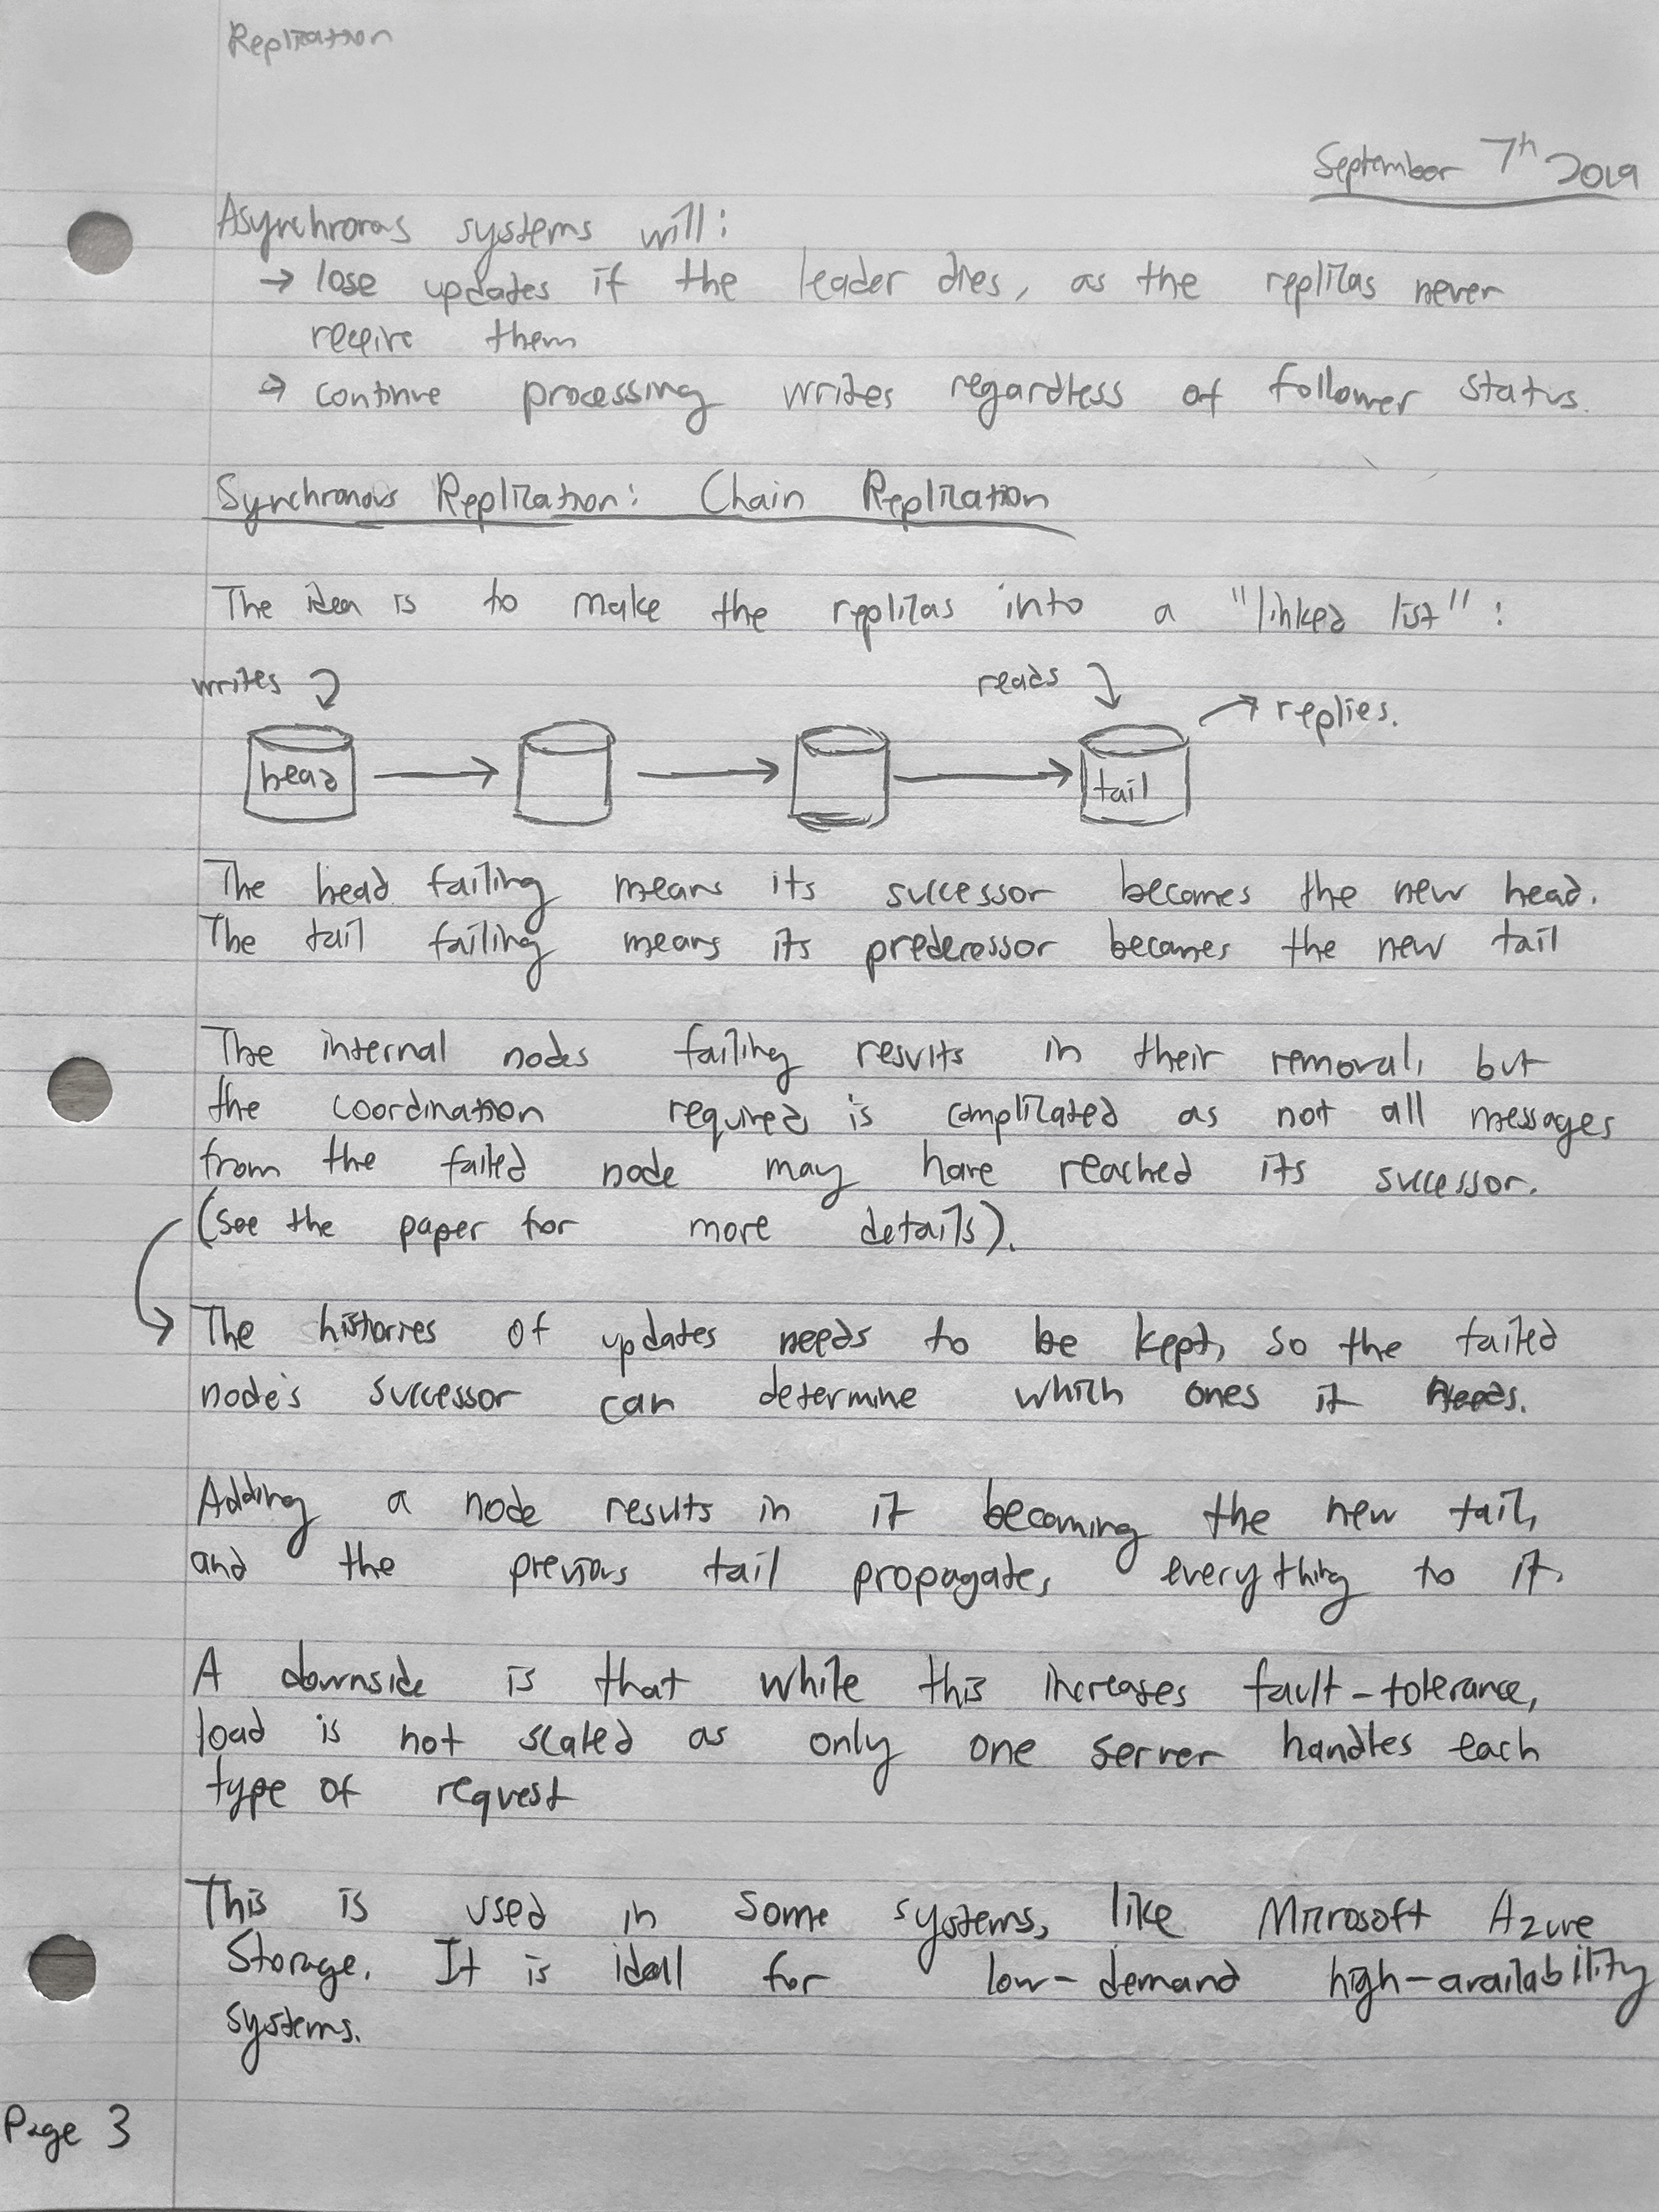 Replication
September 7th 2019
Asynchronous systems will:
→ lose updates if the leader dies, as the replicas never
receive them
→ continue processing writes regardless of follower status.
Synchronous Replication: Chain Replication
The idea is to make the replicas into a "linked list":
writes reads
replies.
head tail
The head failing means its successor becomes the new head.
The tail failing means its predecessor becomes the new tail
The internal nodes failing results in their removal, but
the coordination required is complicated as not all messages
from the failed node may have reached its successor.
(see the paper for more details).
The histories of updates needs to be kept, so the failed
node's successor can determine which ones it needs.
Adding a node results in it becoming the new tail,
and the previous tail propagates everything to it.
A downside is that while this increases fault-tolerance,
load is not scaled as only one server handles each
type of request
This is used in some systems, like Microsoft Azure
Storage. It is ideal for low-demand high-availability
systems.
Page 3